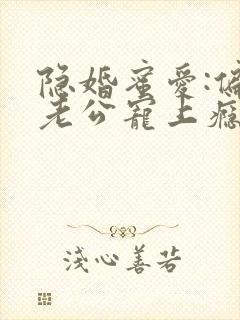 隐婚蜜爱:偏
老公宠上瘾
浅心善若